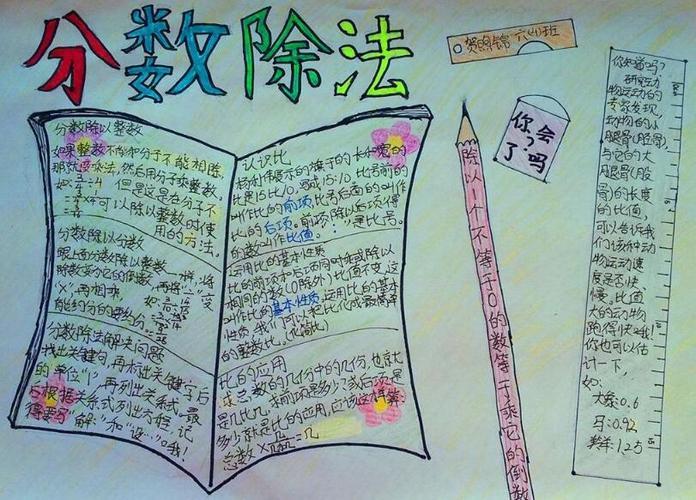 分数除法
贺 锦 六(4)班
分数除以整数
如果整数不能和分子不能相除
那就 乘法，然后用分子乘整数。
但是这是在分子不
可以除以整数的使
用的方法。
分数除以分数
跟上面分数除以整数一样，将
除数变 它的倒数，再将“÷”变
“×”，再相乘，
能约分的要约分
分数除法解决问题
找出关键句，再标出关键字后
的单位“1”，再列出关系式，最
后根据关系式列出方程，记
得要写“解：”和“设……”哦！
认识比
杨利伟展示的旗子的长和宽的
比是15比10，写成15:10，比号前的
叫作比的前项，比号后面的叫作
比的后项。前项除以后项得
的数叫作比值，“：”是比号。
运用比的基本性质
比的前项和后项同时乘或除以
相同的数（0除外）比值不变，这
叫作比的基本性质，运用比的基本
性质，我们可以把比化成最简单
的整数比。(化简)
比的应用
求总数的几份中的几份，也就
是几比几，求前项是多少？或后项是
多少就是比的应用，应该这样算：
总数×几/几=几
除以一个不等于0的数等于乘它的倒数
你会
了吗
？
你知道吗？
研究动
物运动的
专家发现，
动物的小
腿骨(胫骨)
与它的大
腿骨(股
骨)的长度
的比值，
可以告诉我
们该种动
物运动速
度是否快
慢。比值
大的动物
跑得快哦！
你也可以估
计一下，
如：
大象：0.6
马：0.92
羚羊：1.25